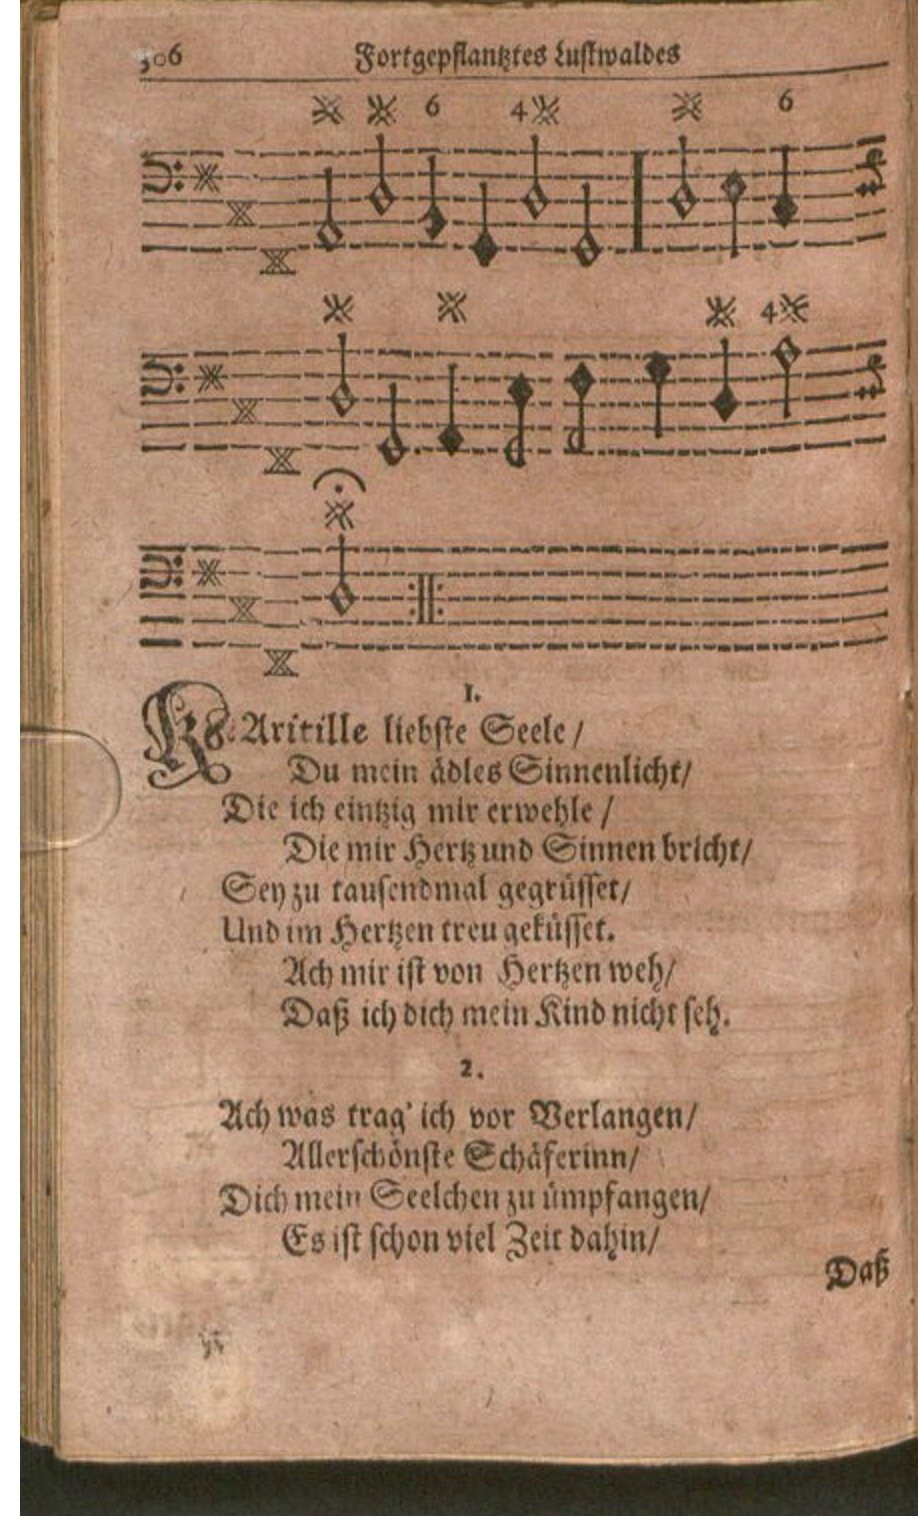 306 Fortgepflantztes Lustwaldes
6 4 6
4
1.
KAritille liebste Seele /
Du mein ädles Sinnenlicht/
Die ich eintzig mir erwehle /
Die mir Hertz und Sinnen bricht/
Sey zu tausendmal gegrüsset/
Und im Hertzen treu geküsset.
Ach mir ist von Hertzen weh/
Daß ich dich mein Kind nicht seh.
2.
Ach was trag' ich vor Verlangen/
Allerschönste Schäferinn/
Dich mein Seelchen zu ümpfangen/
Es ist schon viel Zeit dahin/
Daß